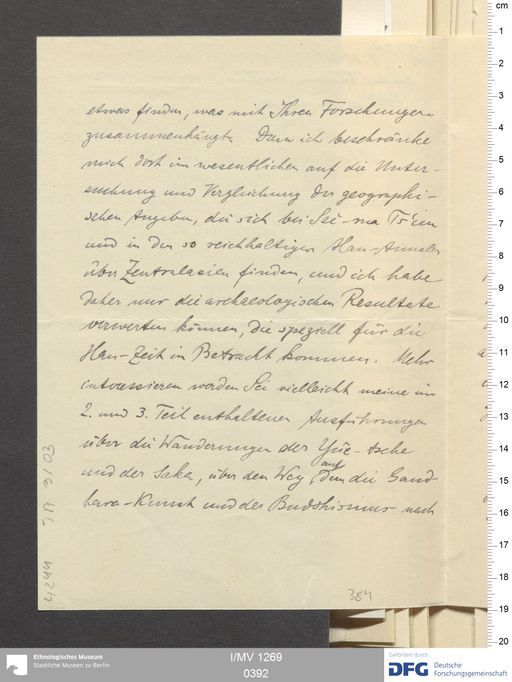 etwas finden, was mit Ihren Forschungen
zusammenhängt. Denn ich beschränke
mich dort im wesentlichen auf die Unter-
suchung und Vergleichung der geographi-
schen Angaben, die sich bei Sse-ma Ts'ien
und in den so reichhaltigen Han-Annalen
über Zentralasien finden, und ich habe
daher nur die archaeologischen Resultate
verwerten können, die speziell für die
Han-Zeit in Betracht kommen. Mehr
interessieren werden Sie vielleicht meine im
2. und 3. Teil enthaltenen Ausführungen
über die Wanderungen der Yüe-tsche
und der Saka, über den Weg, auf dem die Gand-
hara-Kunst und der Buddhismus nach
384
4294 I A 31 03
Ethnologisches Museum
Staatliche Museen zu Berlin
I/MV 1269
0392
Gefördert durch
DFG Deutsche
Forschungsgemeinschaft
cm
1
2
3
4
5
6
7
8
9
10
11
12
13
14
15
16
17
18
19
20